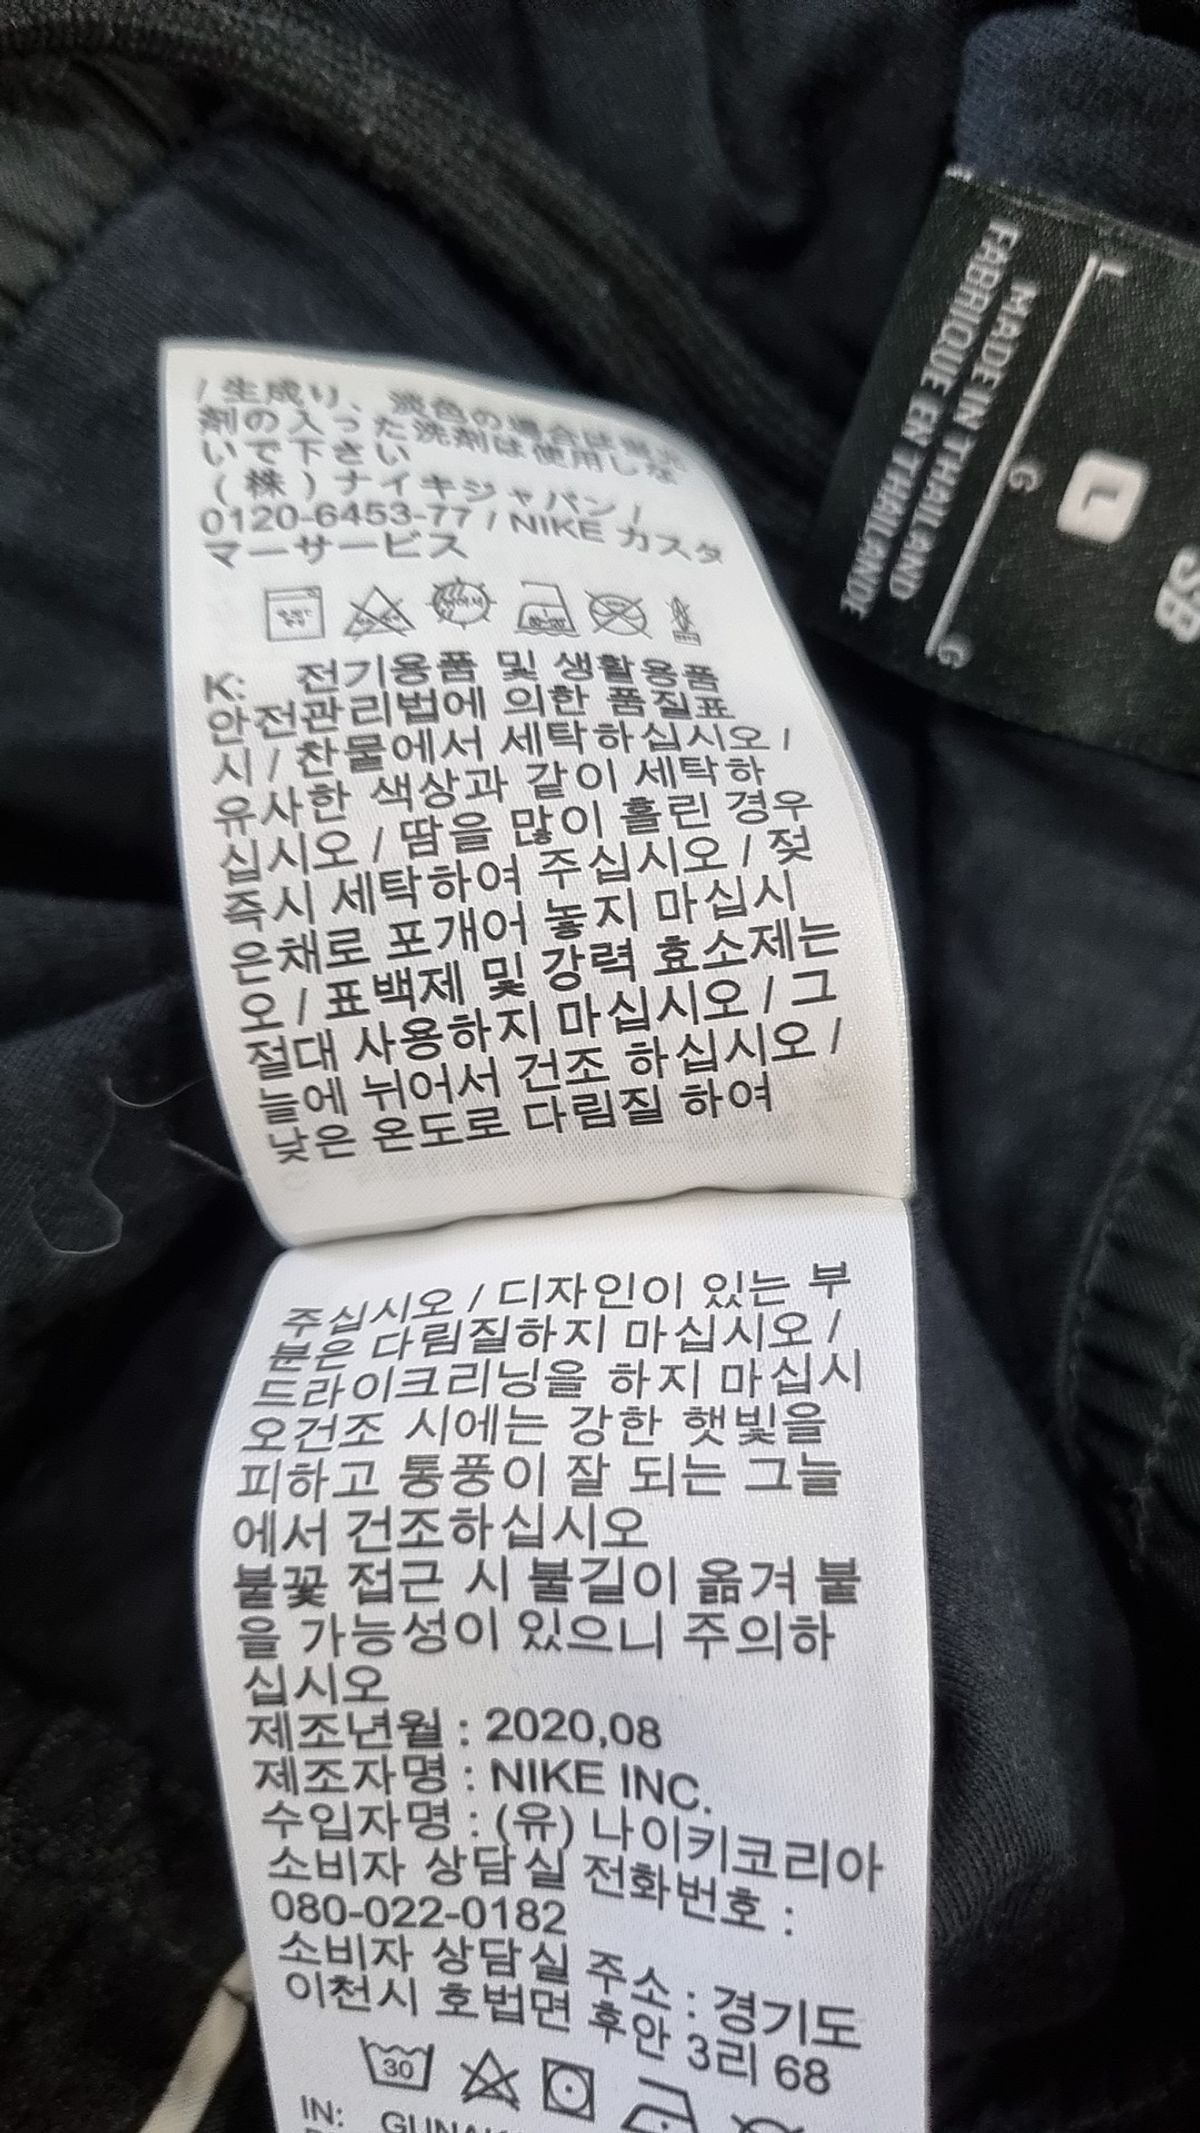 / 生成り、淡色の場合は蛍光
剤の入った洗剤は使用しな
いで下さい
(株) ナイキジャパン /
0120-6453-77 / NIKE カスタ
マーサービス
K: 전기용품 및 생활용품
안전관리법에 의한 품질표
시 / 찬물에서 세탁하십시오 /
유사한 색상과 같이 세탁하
십시오 / 땀을 많이 흘린 경우
즉시 세탁하여 주십시오 / 젖
은채로 포개어 놓지 마십시
오 / 표백제 및 강력 효소제는
절대 사용하지 마십시오 / 그
늘에 뉘어서 건조 하십시오 /
낮은 온도로 다림질 하여
주십시오 / 디자인이 있는 부
분은 다림질하지 마십시오 /
드라이크리닝을 하지 마십시
오건조 시에는 강한 햇빛을
피하고 통풍이 잘 되는 그늘
에서 건조하십시오
불꽃 접근 시 불길이 옮겨 붙
을 가능성이 있으니 주의하
십시오
제조년월 : 2020,08
제조자명 : NIKE INC.
수입자명 : (유) 나이키코리아
소비자 상담실 전화번호 :
080-022-0182
소비자 상담실 주소 : 경기도
이천시 호법면 후안 3리 68
30
IN:
SB
L
L G G
MADE IN THAILAND
FABRIQUE EN THAILANDE